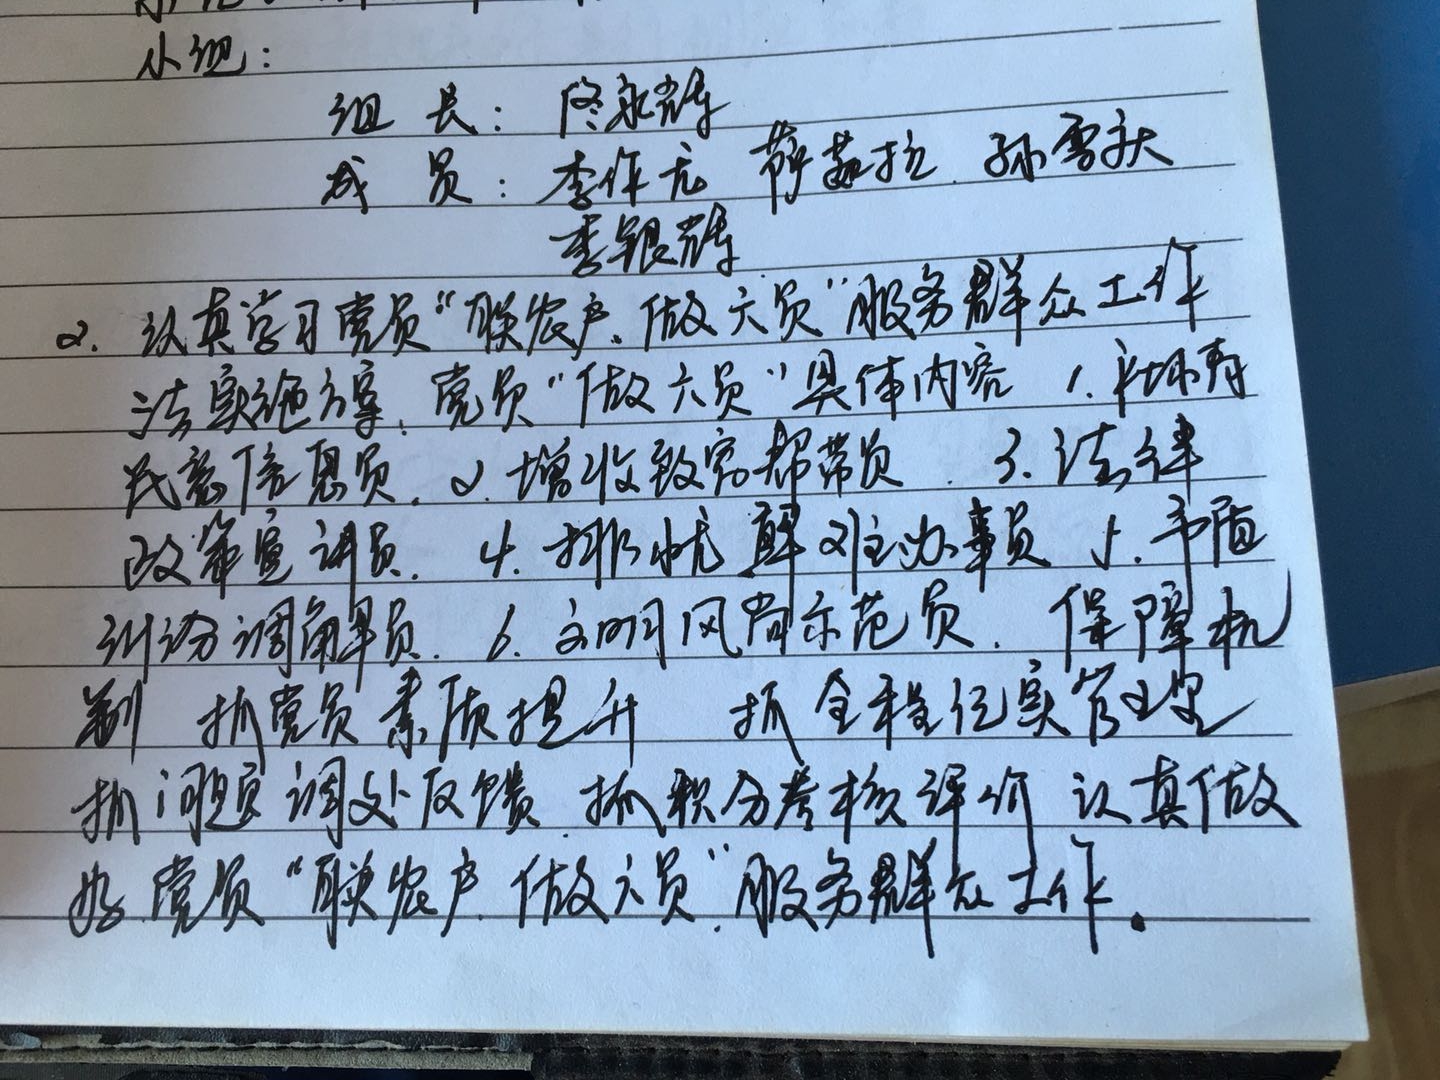 小组：
组 长：佟永辉
成 员：李作尤 萨茹拉 孙雪秋
李银辉
2. 认真学习党员“联农户、做六员”服务群众工作
法实施方案、党员“做六员”具体内容 1.
民意信息员. 2. 增收致富帮带员. 3. 法律
政策宣讲员. 4. 排忧解难办事员 5. 矛盾
纠纷调解员. 6. 文明风尚示范员. 保障机
制 抓党员素质提升 抓全程纪实管理
抓问题调处反馈. 抓积分考核评价 认真做
好党员“联农户、做六员”服务群众工作.